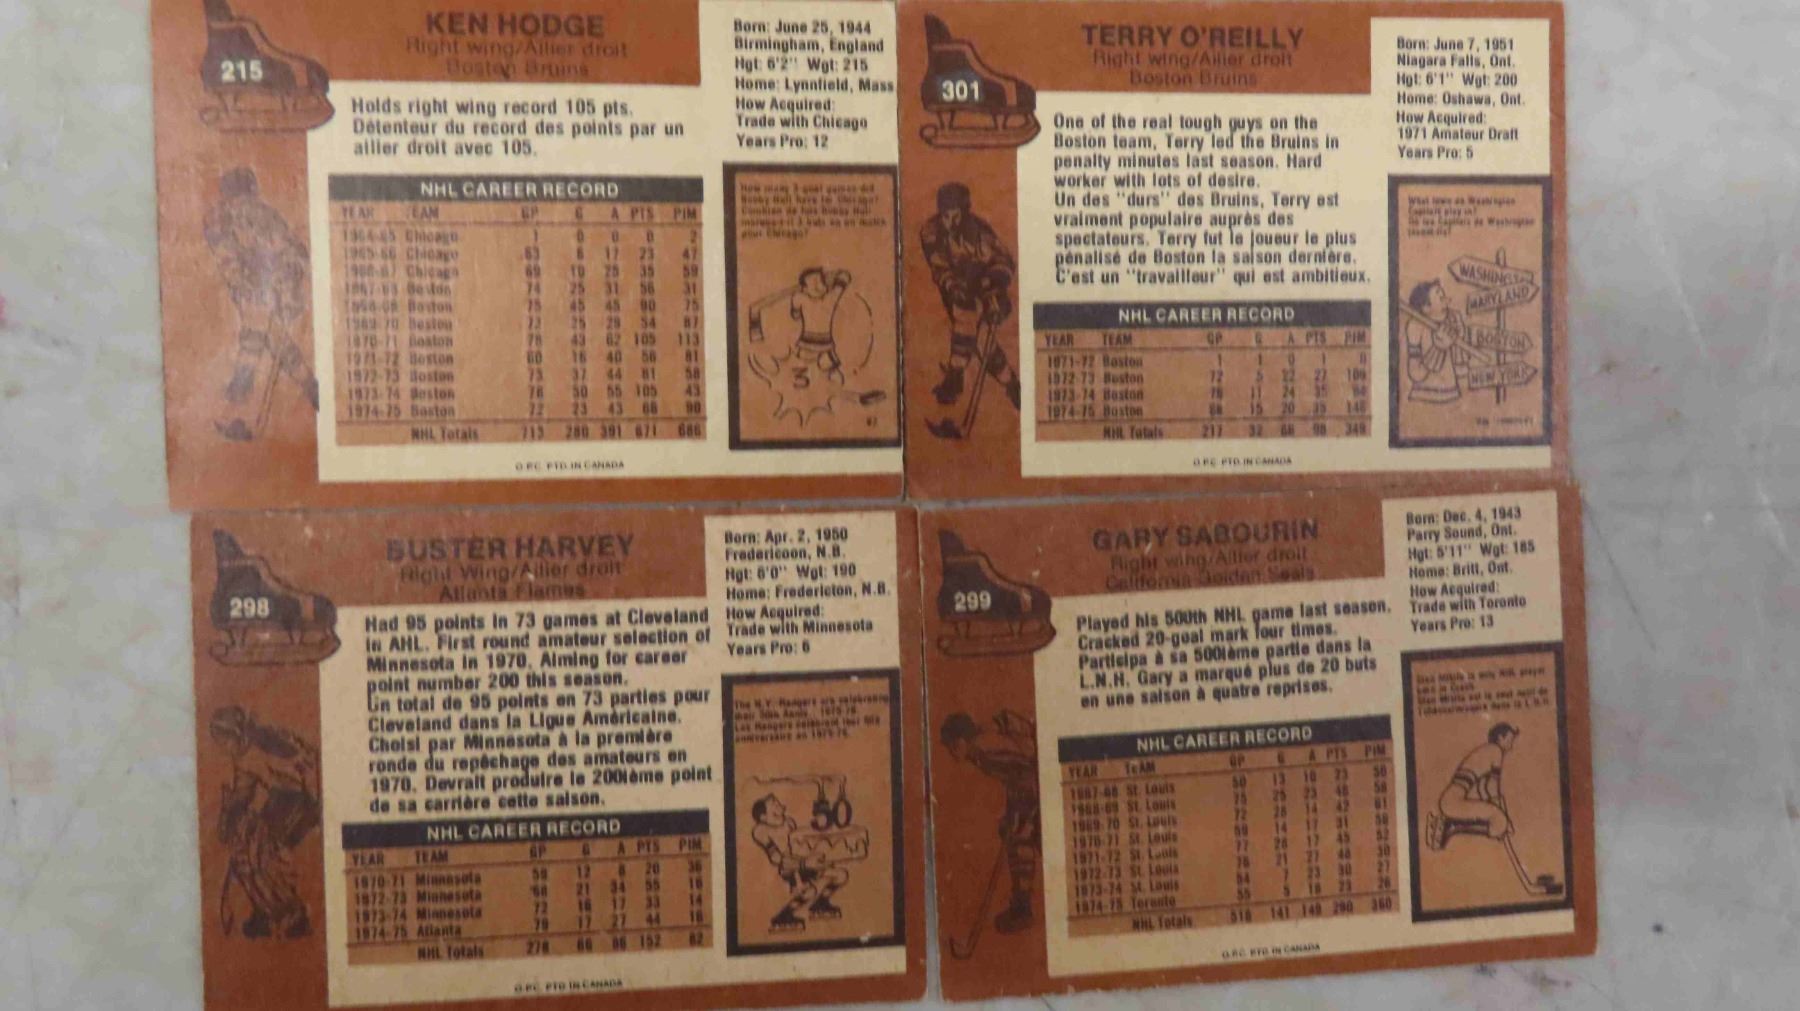 KEN HODGE
Right wing/Ailier droit
Boston Bruins
215
Holds right wing record 105 pts.
Détenteur du record des points par un
ailier droit avec 105.
Born: June 25, 1944
Birmingham, England
Hgt: 6'2" Wgt: 215
Home: Lynnfield, Mass
How Acquired:
Trade with Chicago
Years Pro: 12
NHL CAREER RECORD
YEAR TEAM GP G A PTS PIM
1964-65 Chicago 1 0 0 0 2
1965-66 Chicago 63 6 17 23 47
1966-67 Chicago 69 10 25 35 59
1967-68 Boston 74 25 31 56 31
1968-69 Boston 75 45 45 90 75
1969-70 Boston 72 25 29 54 87
1970-71 Boston 78 43 62 105 113
1971-72 Boston 60 16 40 56 81
1972-73 Boston 73 37 44 81 58
1973-74 Boston 76 50 55 105 43
1974-75 Boston 72 23 43 66 90
NHL Totals 713 280 391 671 686
How many 3-goal games did
Bobby Hull have for Chicago?
3
O.P.C. PTD. IN CANADA
TERRY O'REILLY
Right wing/Ailier droit
Boston Bruins
301
One of the real tough guys on the
Boston team, Terry led the Bruins in
penalty minutes last season. Hard
worker with lots of desire.
Un des "durs" des Bruins, Terry est
vraiment populaire auprès des
spectateurs. Terry fut le joueur le plus
pénalisé de Boston la saison dernière.
C'est un "travailleur" qui est ambitieux.
Born: June 7, 1951
Niagara Falls, Ont.
Hgt: 6'1" Wgt: 200
Home: Oshawa, Ont.
How Acquired:
1971 Amateur Draft
Years Pro: 5
NHL CAREER RECORD
YEAR TEAM GP G A PTS PIM
1971-72 Boston 1 1 0 1 0
1972-73 Boston 72 5 22 27 109
1973-74 Boston 76 11 24 35 94
1974-75 Boston 68 15 20 35 146
NHL Totals 217 32 66 98 349
What town do Washington
Capitals play in?
WASHINGTON
MARYLAND
BOSTON
NEW YORK
O.P.C. PTD. IN CANADA
BUSTER HARVEY
Right Wing/Ailier droit
Atlanta Flames
298
Had 95 points in 73 games at Cleveland
in AHL. First round amateur selection of
Minnesota in 1970. Aiming for career
point number 200 this season.
Un total de 95 points en 73 parties pour
Cleveland dans la Ligue Américaine.
Choisi par Minnesota à la première
ronde du repêchage des amateurs en
1970. Devrait produire le 200ième point
de sa carrière cette saison.
Born: Apr. 2, 1950
Fredericoon, N.B.
Hgt: 6'0" Wgt: 190
Home: Fredericton, N.B.
How Acquired:
Trade with Minnesota
Years Pro: 6
NHL CAREER RECORD
YEAR TEAM GP G A PTS PIM
1970-71 Minnesota 59 12 8 20 36
1972-73 Minnesota 68 21 34 55 16
1973-74 Minnesota 72 16 17 33 14
1974-75 Atlanta 79 17 27 44 16
NHL Totals 278 66 86 152 82
The N.Y. Rangers are celebrating
their 50th Anniv. 1975-76.
Les Rangers célèbrent leur 50e
anniversaire en 1975-76.
50
O.P.C. PTD. IN CANADA
GARY SABOURIN
Right wing/Ailier droit
California Golden Seals
299
Played his 500th NHL game last season.
Cracked 20-goal mark four times.
Participa à sa 500ième partie dans la
L.N.H. Gary a marqué plus de 20 buts
en une saison à quatre reprises.
Born: Dec. 4, 1943
Parry Sound, Ont.
Hgt: 5'11" Wgt: 185
Home: Britt, Ont.
How Acquired:
Trade with Toronto
Years Pro: 13
NHL CAREER RECORD
YEAR TEAM GP G A PTS PIM
1967-68 St. Louis 50 13 10 23 50
1968-69 St. Louis 75 25 23 48 58
1969-70 St. Louis 72 28 14 42 61
1970-71 St. Louis 59 14 17 31 56
1971-72 St. Louis 77 28 17 45 52
1972-73 St. Louis 76 21 27 48 30
1973-74 St. Louis 54 7 23 30 27
1974-75 Toronto 55 5 18 23 26
NHL Totals 518 141 149 290 360
Stan Mikita is only NHL player
born in Czech.
O.P.C. PTD. IN CANADA